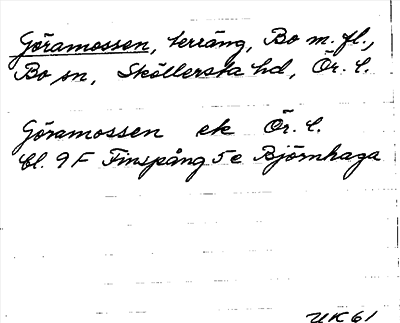 Göramossen, terräng, Bo m. fl.,
Bo sn, Sköllersta hd, Ör. l.
Göramossen ek Ör. l.
bl. 9F Finspång 5e Björnhaga
UK61